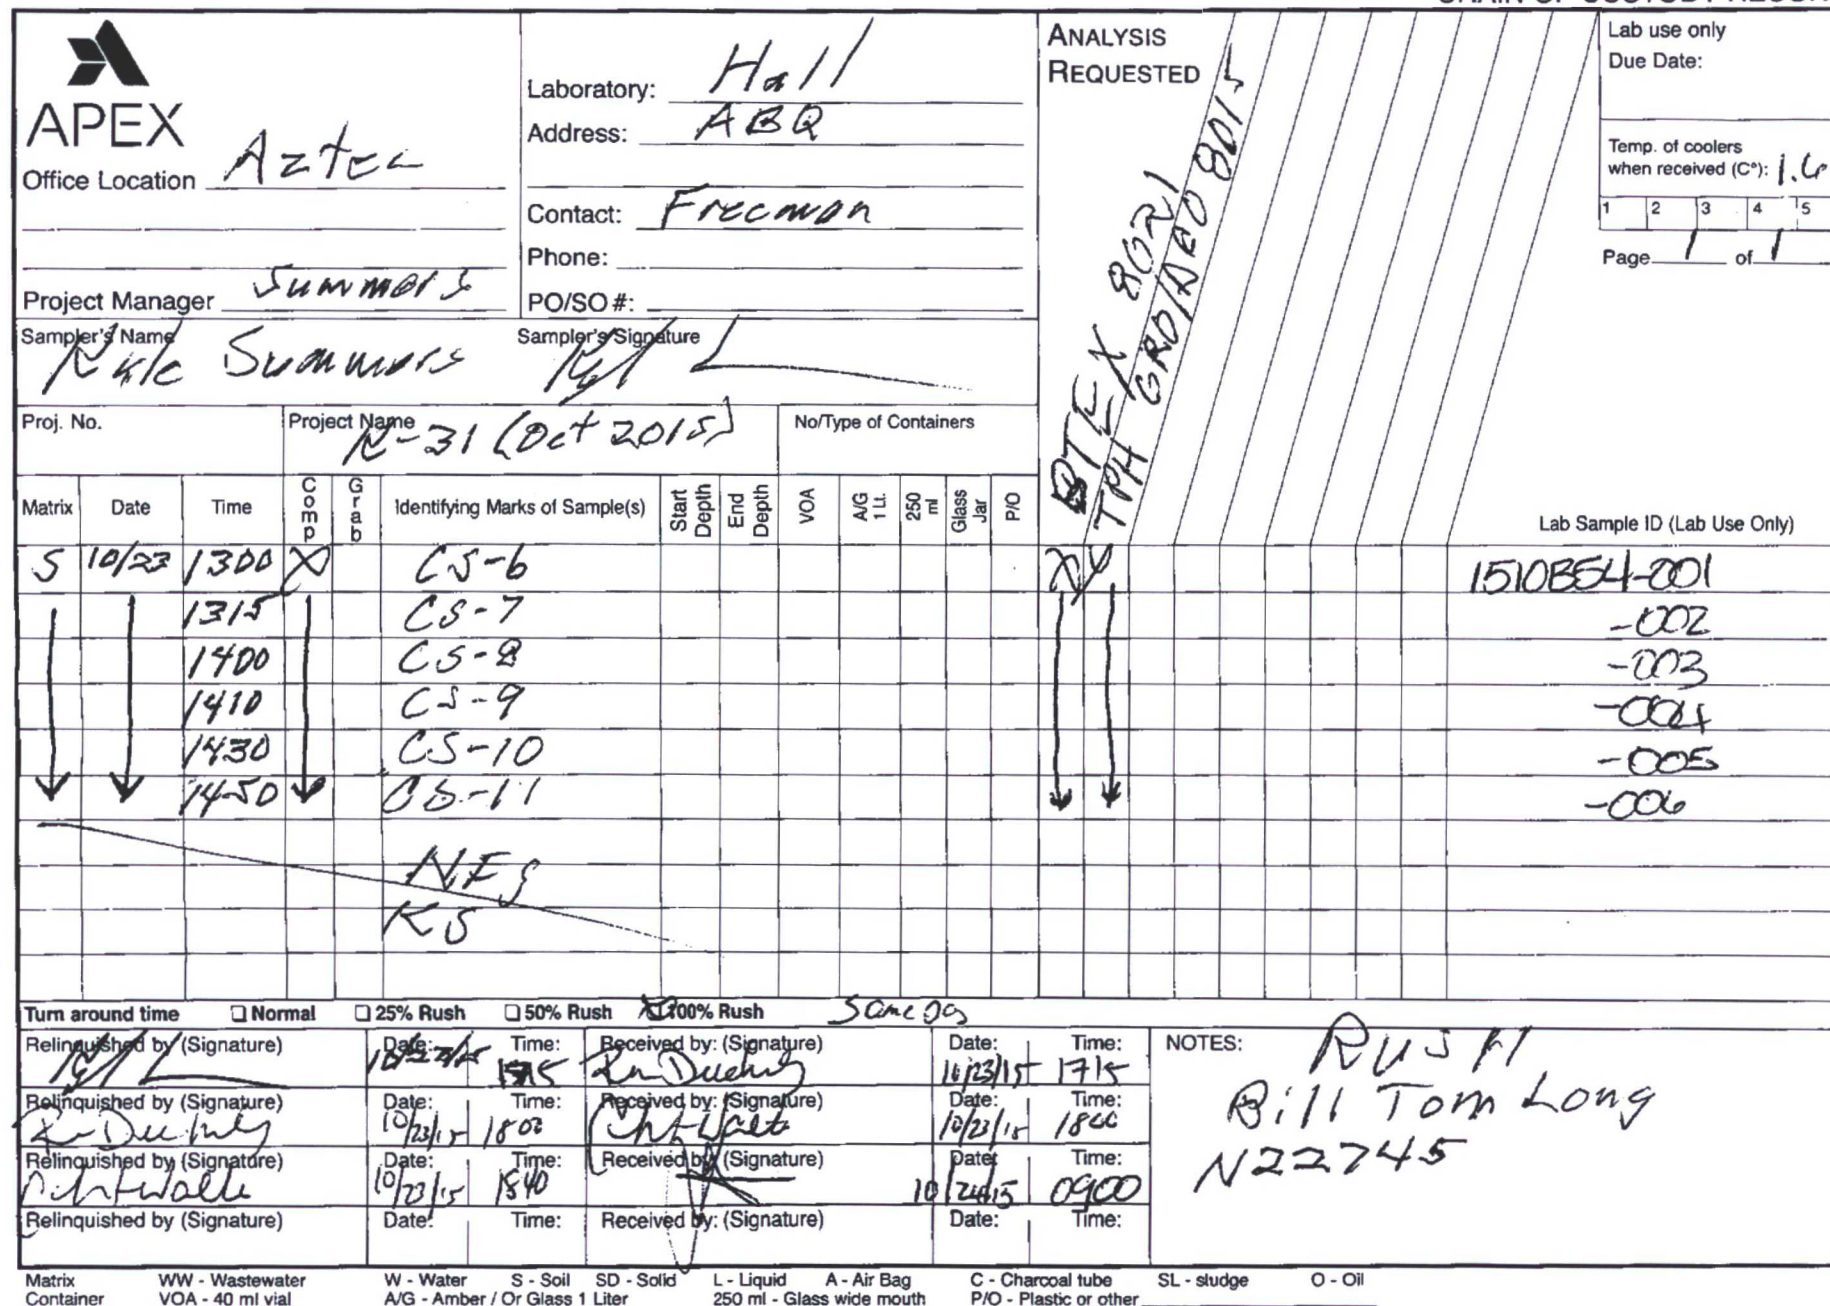 APEX
Office Location Aztec
Project Manager Summers
Laboratory: Hall
Address: ABQ
Contact: Freeman
Phone:
PO/SO #:
Sampler's Name
Kyle Summers
Sampler's Signature
ANALYSIS
REQUESTED
BTEX 8021
TPH GRO/DRO 8015
Lab use only
Due Date:
Temp. of coolers
when received (C°): 1.6
1 2 3 4 5
Page 1 of 1
Proj. No.
Project Name
N-31 (Oct 2015)
No/Type of Containers
Matrix Date Time Comp Grab Identifying Marks of Sample(s) Start Depth End Depth VOA A/G 1 Lt. 250 ml Glass Jar P/O Lab Sample ID (Lab Use Only)
S 10/23 1300 X CS-6 X X 1510B54-001
1315 CS-7 -002
1400 CS-8 -003
1410 CS-9 -004
1430 CS-10 -005
1450 CS-11 -006
KS
Turn around time ☐ Normal ☐ 25% Rush ☐ 50% Rush X 100% Rush Same Day
Relinquished by (Signature) Date: Time: Received by: (Signature) Date: Time:
10/23/15 1715
Relinquished by (Signature) Date: Time: Received by: (Signature) Date: Time:
10/23/15 10/23/15
Relinquished by (Signature) Date: Time: Received by: (Signature) Date: Time:
10/23/15 10/24/15 0900
Relinquished by (Signature) Date: Time: Received by: (Signature) Date: Time:
NOTES: RUSH
Bill Tom Long
N22745
Matrix WW - Wastewater W - Water S - Soil SD - Solid L - Liquid A - Air Bag C - Charcoal tube SL - sludge O - Oil
Container VOA - 40 ml vial A/G - Amber / Or Glass 1 Liter 250 ml - Glass wide mouth P/O - Plastic or other